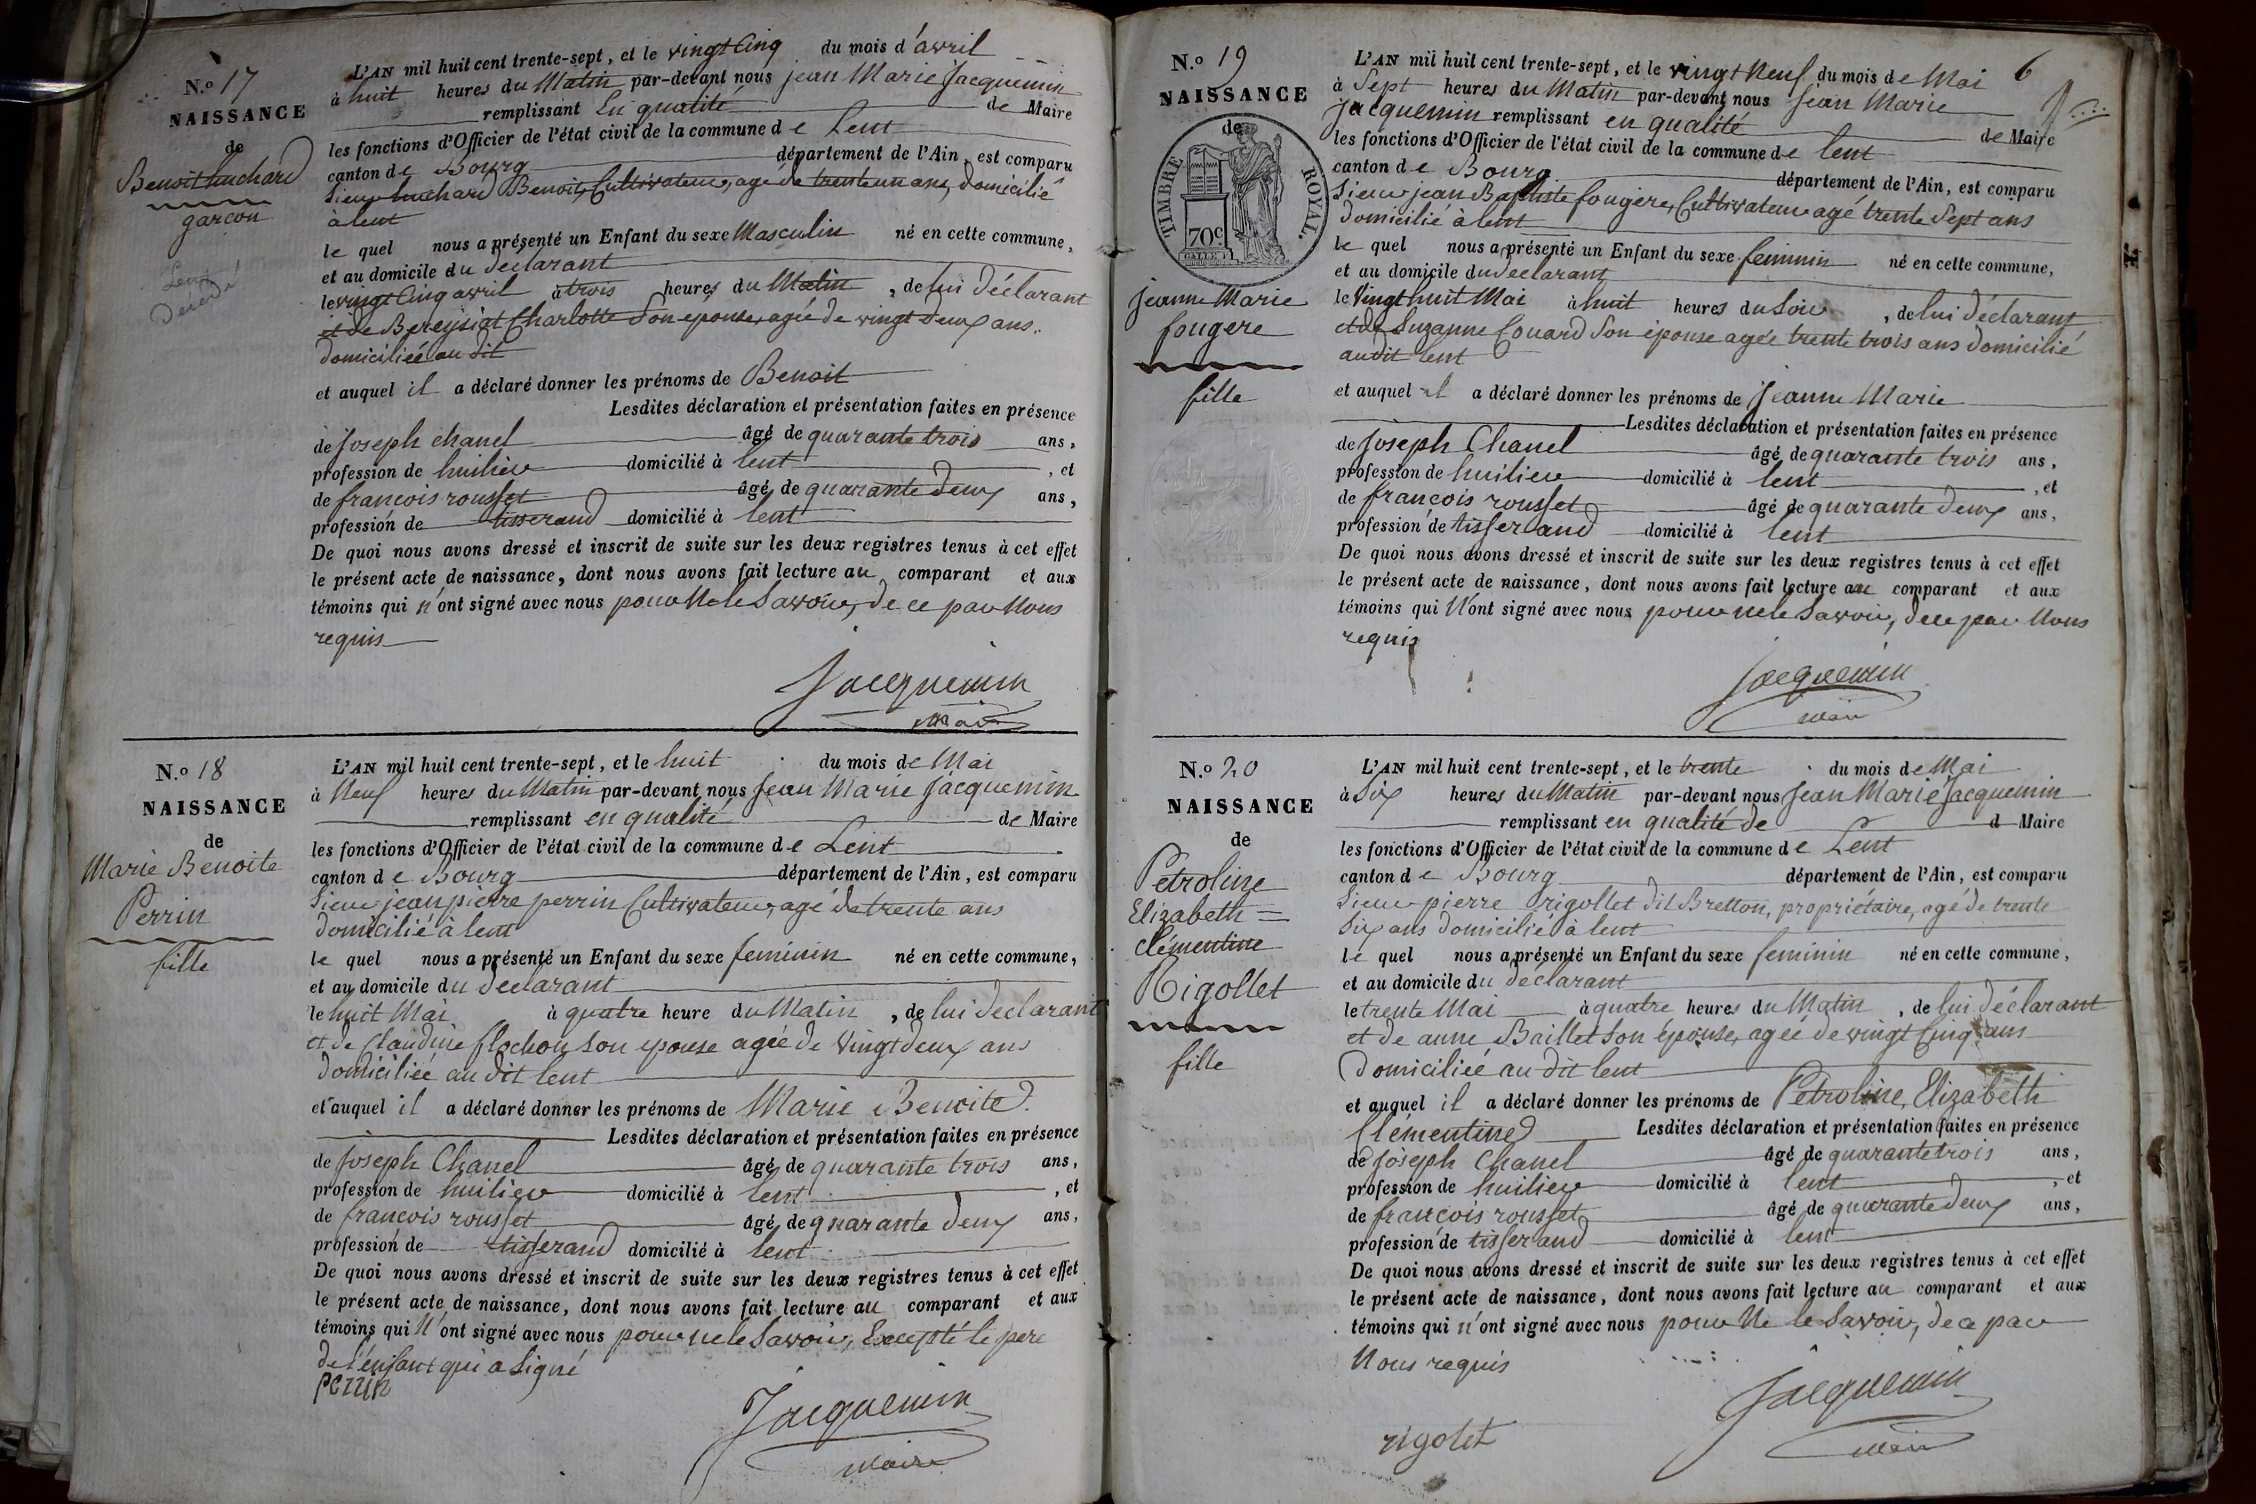 N.o 17
NAISSANCE
de
Benoit huchard
garçon
L'AN mil huit cent trente-sept, et le vingt Cinq du mois d'avril
à huit heures du Matin par-devant nous jean Marie Jacquemin
remplissant En qualité de Maire
les fonctions d'Officier de l'état civil de la commune de Lent
canton de Bourg département de l'Ain, est comparu
Sieur huchard Benoit, Cultivateur, agé de trente un ans, domicilié
à lent
le quel nous a présenté un Enfant du sexe Masculin né en cette commune,
et au domicile du déclarant
le vingt Cinq avril à trois heures du Matin, de lui Déclarant
et de Bereyziat Charlotte Son epouse, agée de vingt Deux ans.
domiciliée au dit
et auquel il a déclaré donner les prénoms de Benoit
Lesdites déclaration et présentation faites en présence
de joseph chanel âgé de quarante trois ans,
profession de huilier domicilié à lent, et
de francois rousset âgé de quarante Deux ans,
profession de tisserand domicilié à lent
De quoi nous avons dressé et inscrit de suite sur les deux registres tenus à cet effet
le présent acte de naissance, dont nous avons fait lecture au comparant et aux
témoins qui n'ont signé avec nous pour Ne le Savoir, de ce par Nous
requis
Jacquemin
maire
N.o 18
NAISSANCE
de
Marie Benoite
Perrin
fille
L'AN mil huit cent trente-sept, et le huit du mois de Mai
à Neuf heures du Matin par-devant nous Jean Marie Jacquemin
remplissant en qualité de Maire
les fonctions d'Officier de l'état civil de la commune de Lent
canton de Bourg département de l'Ain, est comparu
Sieur jean pierre perrin Cultivateur, agé de trente ans
domicilié à lent
le quel nous a présenté un Enfant du sexe feminin né en cette commune,
et au domicile du declarant
le huit Mai à quatre heure du Matin, de lui déclarant
et de Claudine flochon Son epouse agée de Vingt deux ans
domiciliée au dit lent
et auquel il a déclaré donner les prénoms de Marie Benoite
Lesdites déclaration et présentation faites en présence
de joseph Chanel âgé de quarante trois ans,
profession de huilier domicilié à lent, et
de francois rousset âgé de quarante Deux ans,
profession de tisserand domicilié à lent
De quoi nous avons dressé et inscrit de suite sur les deux registres tenus à cet effet
le présent acte de naissance, dont nous avons fait lecture au comparant et aux
témoins qui N'ont signé avec nous pour ne le Savoir, Excepté le pere
de l'enfant qui a Signé
perrin
Jacquemin
maire
6
N.o 19
NAISSANCE
de
TIMBRE ROYAL.
70c
jeanne Marie
fougere
fille
L'AN mil huit cent trente-sept, et le vingt Neuf du mois de Mai
à Sept heures du Matin par-devant nous Jean Marie
jacquemin remplissant en qualité de Maire
les fonctions d'Officier de l'état civil de la commune de lent
canton de Bourg département de l'Ain, est comparu
Sieur jean Baptiste fougere, Cultivateur agé trente Sept ans
domicilié à lent
le quel nous a présenté un Enfant du sexe feminin né en cette commune,
et au domicile du declarant
le Vingt huit Mai à huit heures du Soir, de lui déclarant
et de Suzanne Couard Son épouse agée trente trois ans domicilié
audit lent
et auquel il a déclaré donner les prénoms de Jeanne Marie
Lesdites déclaration et présentation faites en présence
de joseph Chanel âgé de quarante trois ans,
profession de huilier domicilié à lent, et
de françois rousset âgé de quarante Deux ans,
profession de tisserand domicilié à lent
De quoi nous avons dressé et inscrit de suite sur les deux registres tenus à cet effet
le présent acte de naissance, dont nous avons fait lecture au comparant et aux
témoins qui N'ont signé avec nous pour ne le Savoir, de ce par Nous
requis
Jacquemin
maire
N.o 20
NAISSANCE
de
Pétroline
Elizabeth =
clémentine
Rigollet
fille
L'AN mil huit cent trente-sept, et le trente du mois de Mai
à Six heures du Matin par-devant nous Jean Marie Jacquemin
remplissant en qualité de d Maire
les fonctions d'Officier de l'état civil de la commune de Lent
canton de Bourg département de l'Ain, est comparu
Sieur pierre rigollet dit Bretton, propriétaire, agé de trente
Six ans domicilié à lent
le quel nous a présenté un Enfant du sexe feminin né en cette commune,
et au domicile du déclarant
le trente Mai à quatre heures du Matin, de lui Déclarant
et de anne Baillet Son épouse, agée de vingt Cinq ans
Domiciliée au dit lent
et auquel il a déclaré donner les prénoms de Pétroline, Elizabeth
Clémentine Lesdites déclaration et présentation faites en présence
de joseph Chanel âgé de quarante trois ans,
profession de huilier domicilié à lent, et
de françois rousset âgé de quarante Deux ans,
profession de tisserand domicilié à lent
De quoi nous avons dressé et inscrit de suite sur les deux registres tenus à cet effet
le présent acte de naissance, dont nous avons fait lecture au comparant et aux
témoins qui n'ont signé avec nous pour Ne le Savoir, de ce par
Nous requis
Jacquemin
maire
rigolet